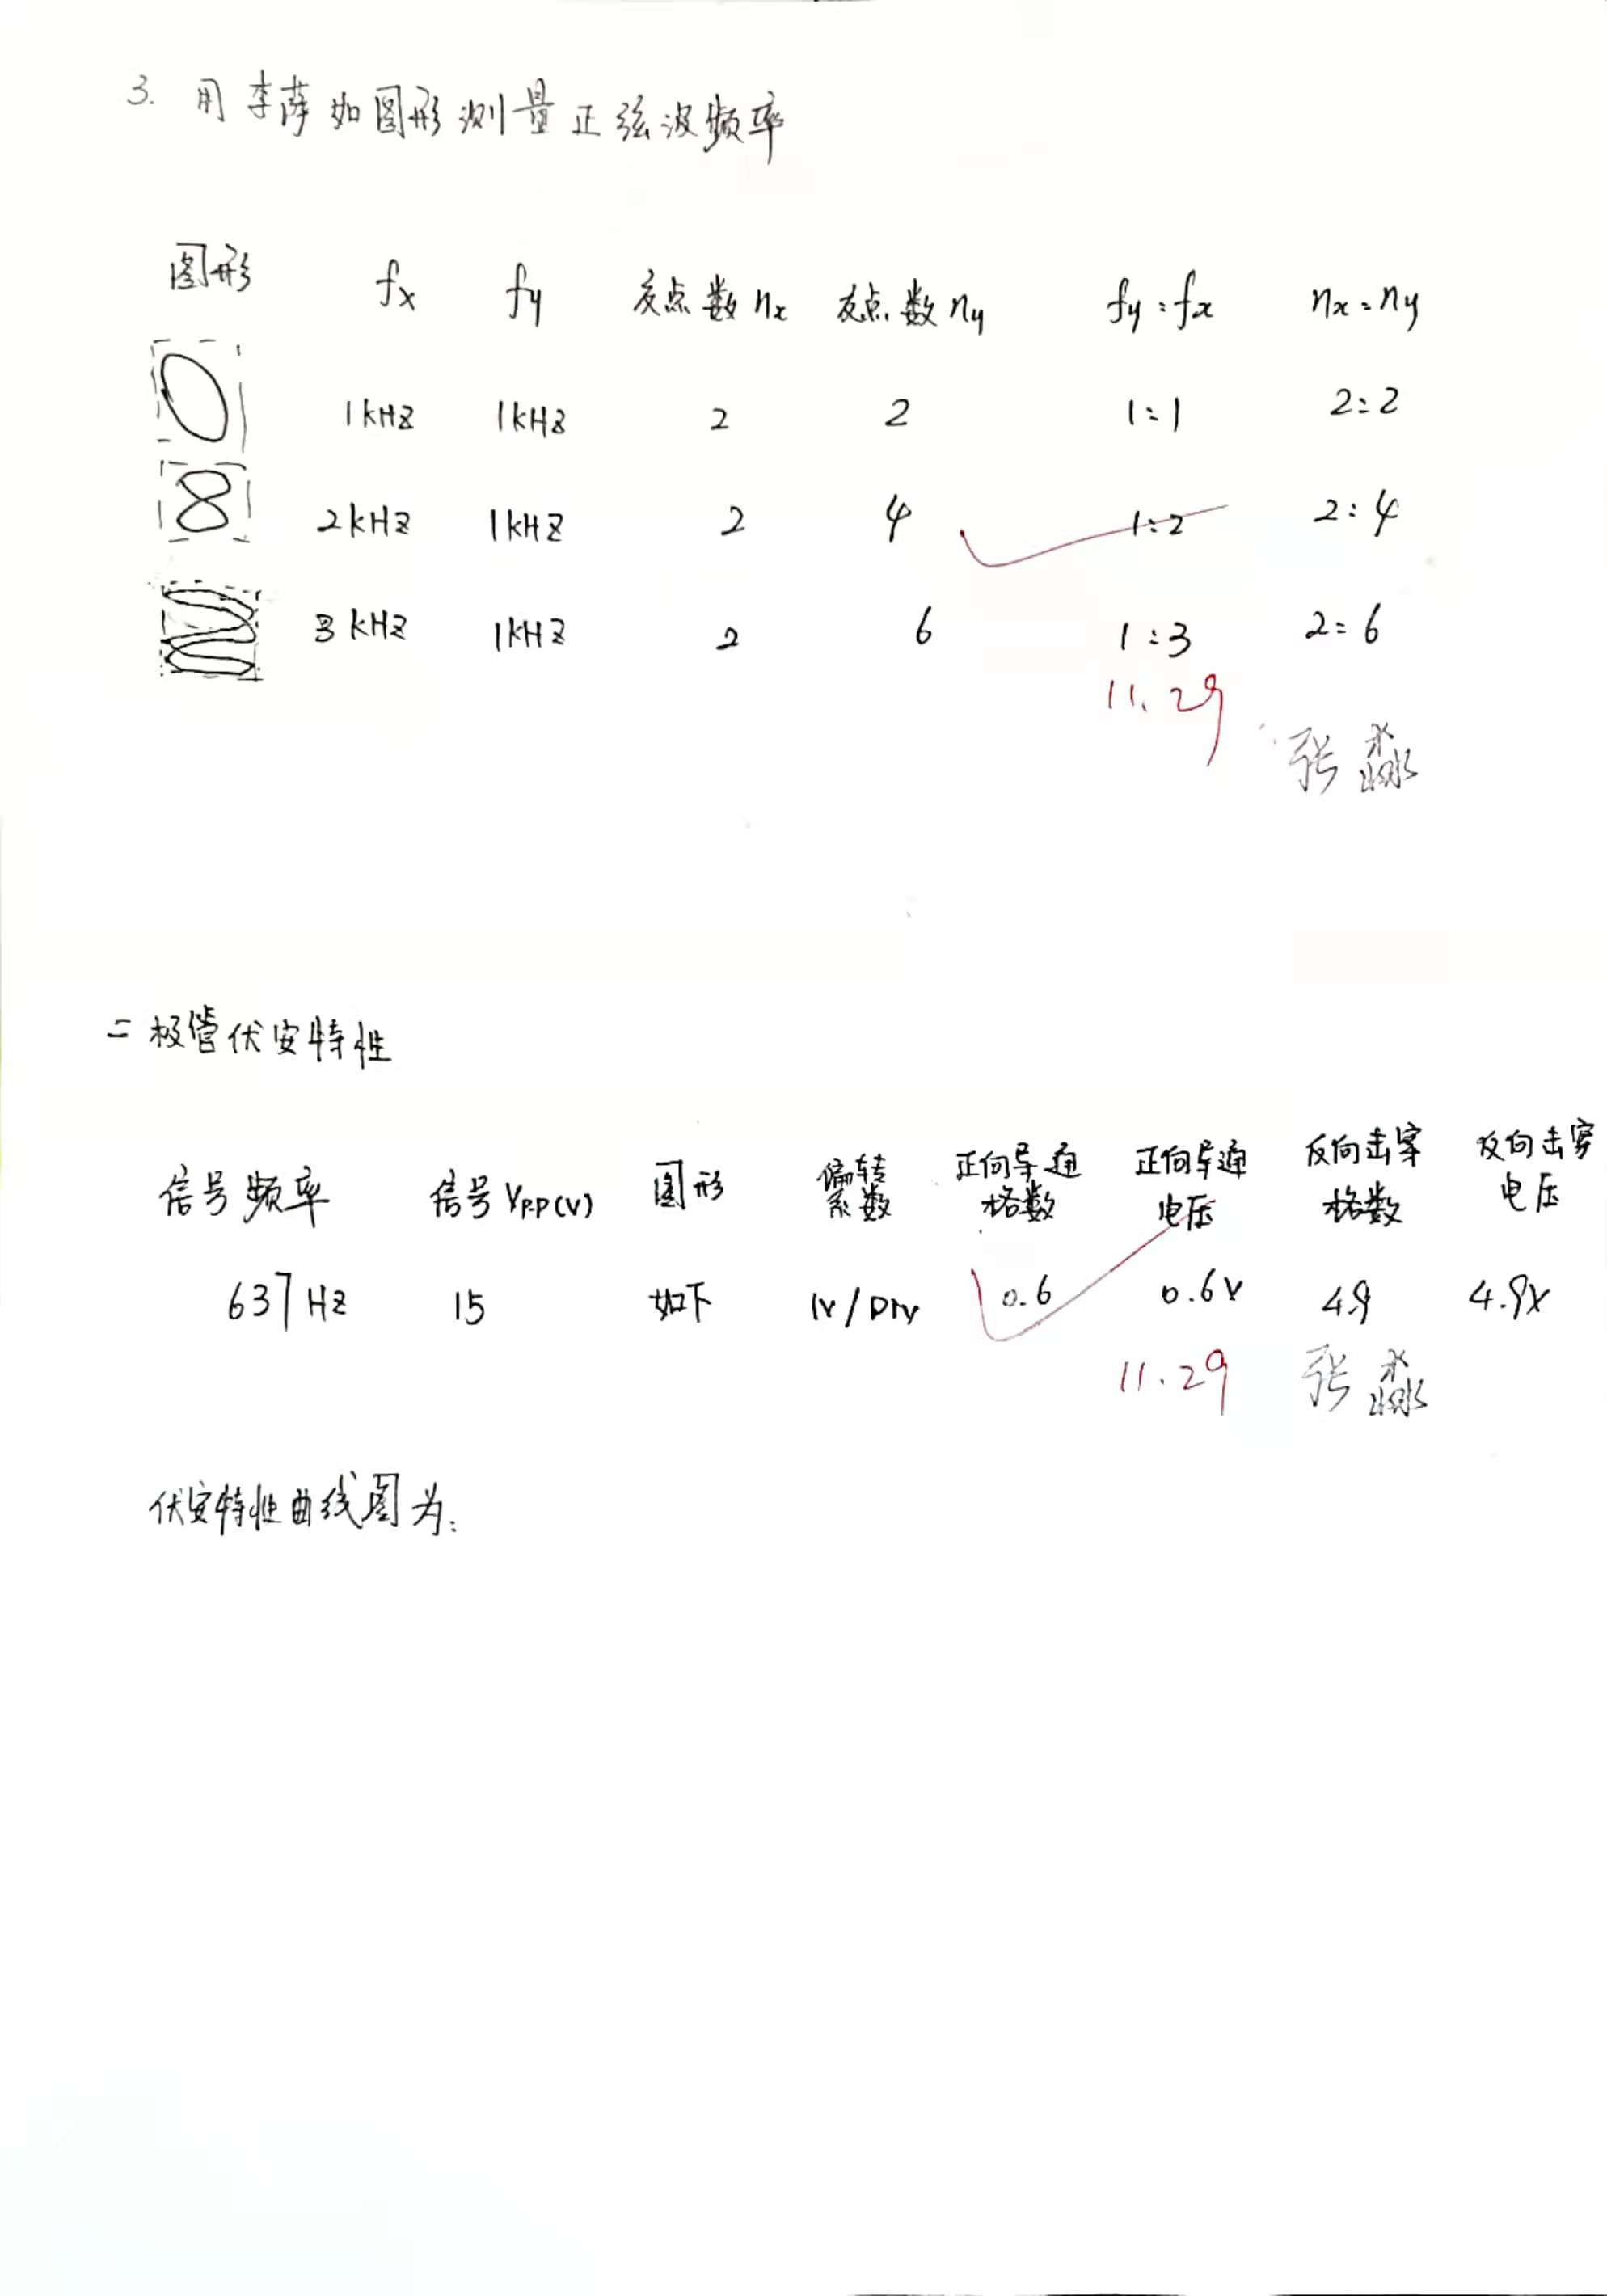 3. 用李萨如图形测量正弦波频率
图形 fx fy 交点数nx 交点数ny fy:fx nx:ny
1kHz 1kHz 2 2 1:1 2:2
2kHz 1kHz 2 4 1:2 2:4
3kHz 1kHz 2 6 1:3 2:6
11.29
张淼
二极管伏安特性
信号频率 信号Vp.p(v) 图形 偏转系数 正向导通格数 正向导通电压 反向击穿格数 反向击穿电压
637Hz 15 如下 1v/Div 0.6 0.6v 4.9 4.9v
11.29 张淼
伏安特性曲线图为: